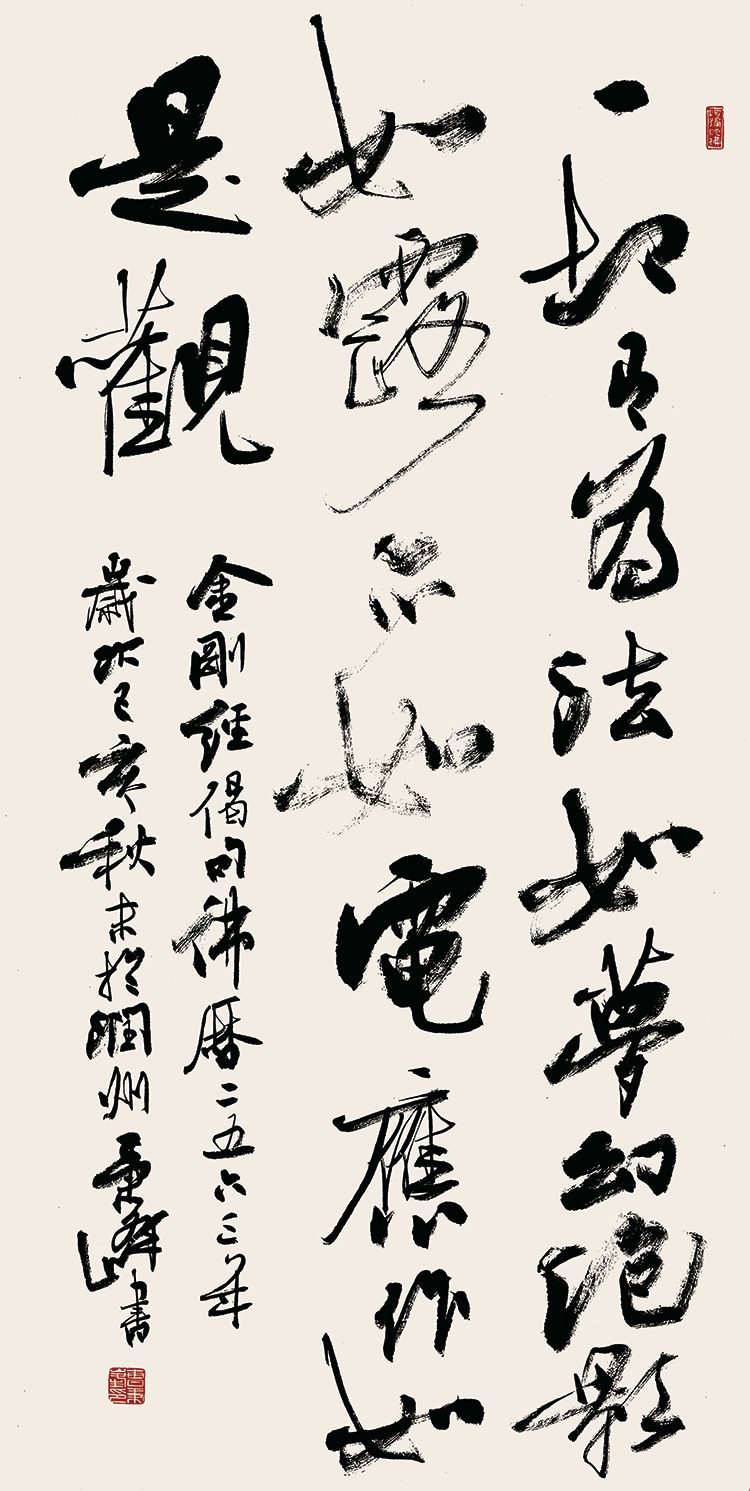 一切有為法如夢幻泡影
如露亦如電應作如
是觀
金剛經偈句佛曆二五六三年
歲次己亥秋末於潤州秉峰書